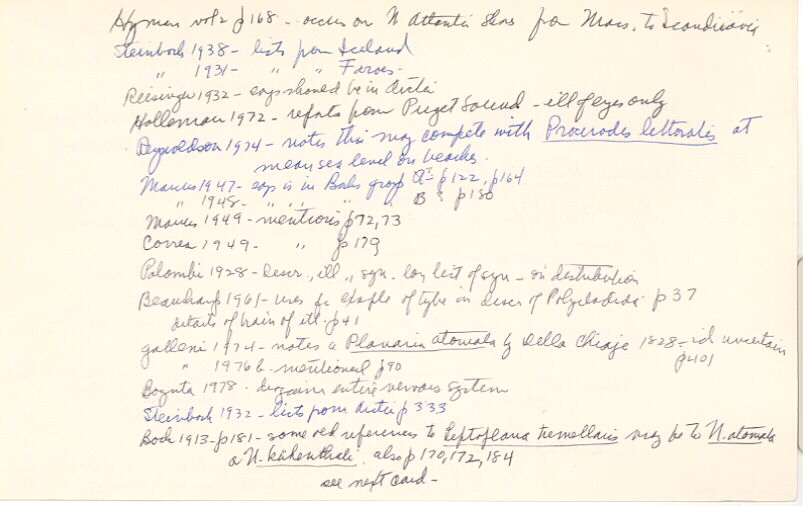 Hyman vol 2 p168 - occurs on N Atlantic shores from Mass. to Scandinavia
Steinbock 1938 - lists from Iceland
" 1931 - " " Faroes -
Reisinger 1932 - says should be in Arctic
Holleman 1972 - reports from Puget Sound - ill of eyes only
Reynoldson 1974 - notes this may compete with Procerodes littoralis at
mean sea level on beaches.
Marcus 1947 - says is in Bocks group A - p122, p164
" 1948 - " " " " B? p180
Marcus 1949 - mentions p72,73
Correa 1949 - " p179
Palombi 1928 - Descr., ill., syn. long list of syn - on distribution
Beauchamp 1961 - uses for example of type in descr of Polycladida p37
details of brain of ill. p41
Galleni 1974 - notes a Planaria atomata by Della Chiaje 1828 - id uncertain
p401
" 1976 b - mentioned p90
Boguta 1978 - diagrams entire nervous system
Steinbock 1932 - lists from Arctic p333
Bock 1913 - p181 - some old references to Leptoplana tremellaris may be to N. atomata
or N. kükenthali. also p170,172,184
see next card -